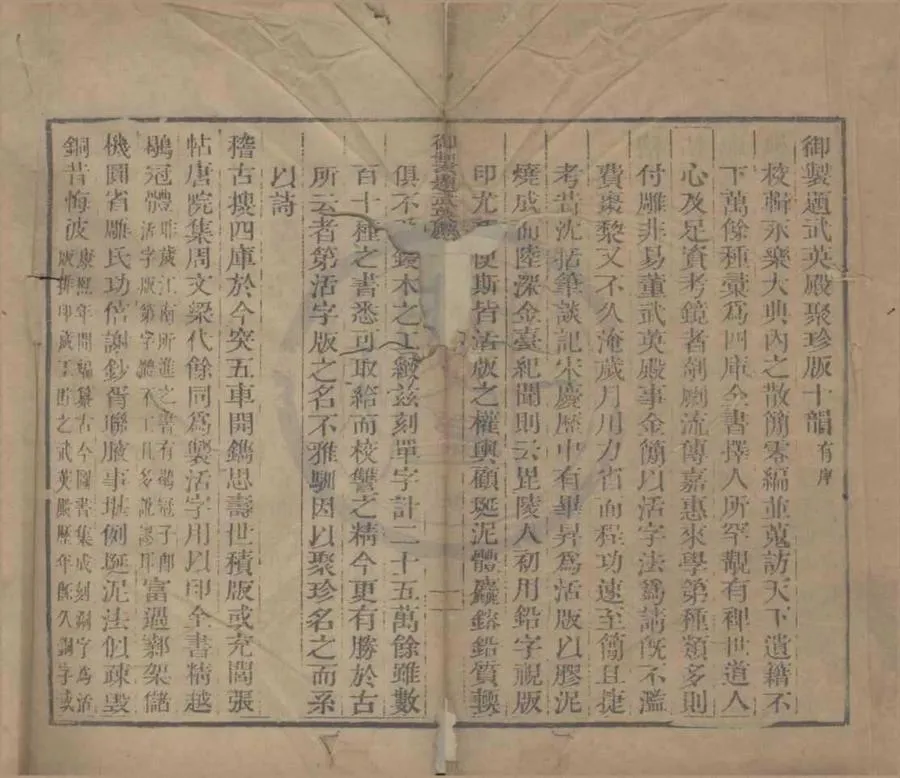 御製題武英殿聚珍版十韻有序
校輯永樂大典內之散簡零編並蒐訪天下遺籍不
下萬餘種彙為四庫全書擇人所罕覯有裨世道人
心及足資考鏡者剞劂流傳嘉惠來學第種類多則
付雕非易董武英殿事金簡以活字法為請既不濫
費棗棃又不久淹歲月用力省而程功速至簡且捷
考昔沈括筆談記宋慶歷中有畢昇為活版以膠泥
燒成而陸深金臺紀聞則云毘陵人初用鉛字視版
印尤便斯皆活版之權輿顧埏泥體麤鎔鉛質輭
御製題武英殿
俱不鋟木之工緻茲刻單字計二十五萬餘雖數
百十種之書悉可取給而校讐之精今更有勝於古
所云者第活字版之名不雅馴因以聚珍名之而系
以詩
稽古搜四庫於今突五車開鐫思壽世積版或充閭張
帖唐院集周文梁代餘同為製活字用以印全書精越
鶡冠體昨歲江南所進之書有鶡冠子即
活字版第字體不工且多訛謬耳富過鄴架儲
機圓省雕氏功倍謝鈔胥聯腋事堪例埏泥法似疎毀
銅昔悔彼康熙年間編纂古今圖書集成刻銅字為活
版排印蕆工貯之武英殿歷年既久銅字或